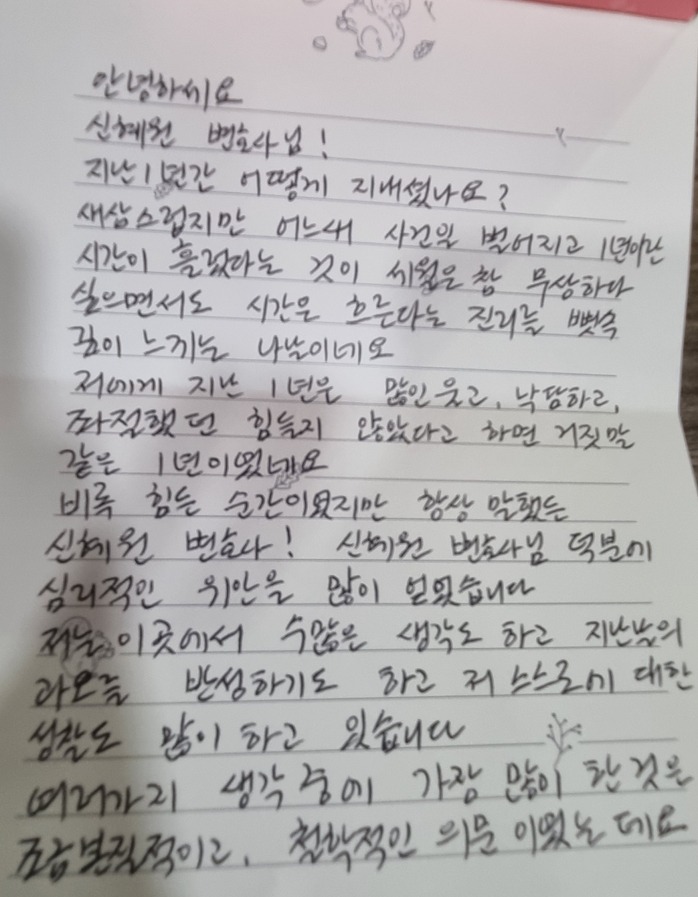 안녕하세요
신혜원 변호사님!
지난 1년간 어떻게 지내셨나요?
새삼스럽지만 어느새 사건일 벌어지고 1년이란
시간이 흘렀다는 것이 세월은 참 무상하다
싶으면서도 시간은 흐른다는 진리를 뼛속
깊이 느끼는 나날이네요
저에게 지난 1년은 많인 웃고, 낙담하고,
좌절했던 힘들지 않았다고 하면 거짓말
같은 1년이였네요
비록 힘든 순간이였지만 항상 말했든
신혜원 변호사! 신혜원 변호사님 덕분에
심리적인 위안을 많이 얻었습니다
저는 이곳에서 수많은 생각도 하고 지난날의
과오를 반성하기도 하고 저 스스로에 대한
성찰도 많이 하고 있습니다
여러가지 생각 중에 가장 많이 한 것은
조금 본질적이고, 철학적인 의문이였는데요